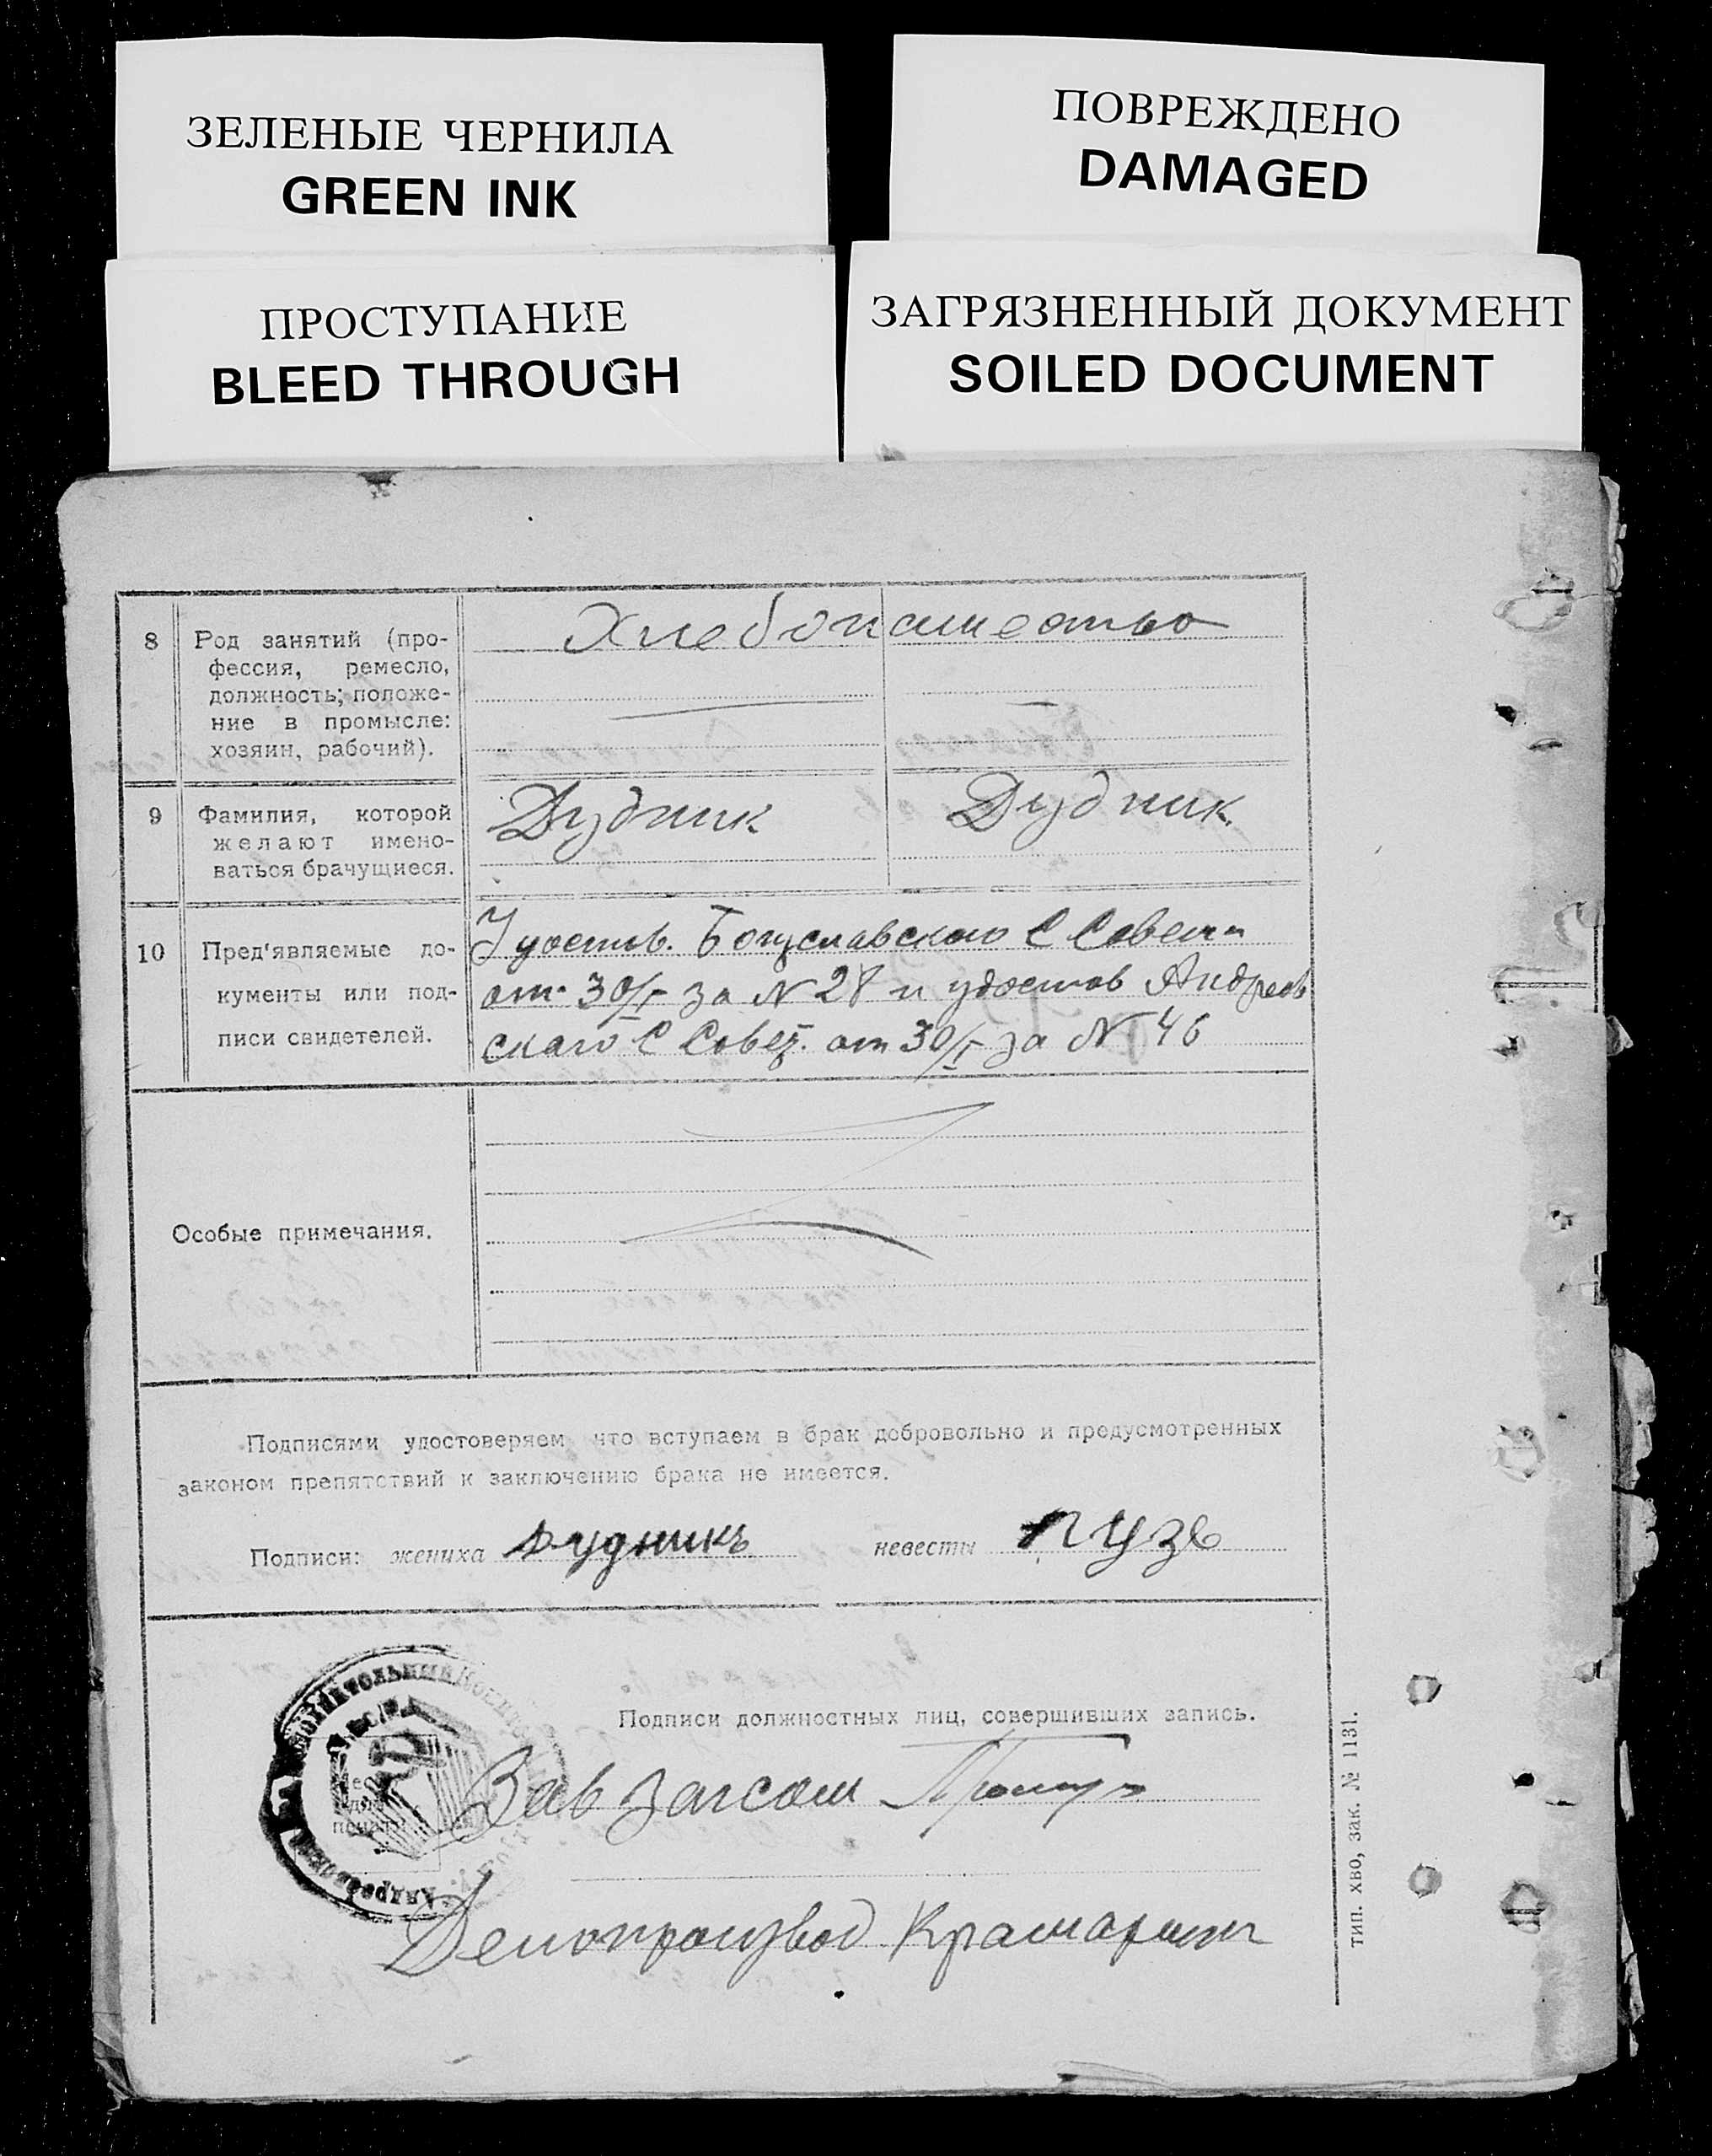 ЗЕЛЕНЫЕ ЧЕРНИЛА
GREEN INK
ПОВРЕЖДЕНО
DAMAGED
ПРОСТУПАНИЕ
BLEED THROUGH
ЗАГРЯЗНЕННЫЙ ДОКУМЕНТ
SOILED DOCUMENT
8
Род занятий (про-
фессия, ремесло,
должность; положе-
ние в промысле:
хозяин, рабочий).
Хлебопашество
9
Фамилия, которой
желают имено-
ваться брачущиеся.
Дудник
Дудник.
10
Пред'являемые до-
кументы или под-
писи свидетелей.
Удостов. Богуславского С Совета
от 30/I за № 28 и удостов Андреев
скаго С Совет. от 30/I за № 46
Особые примечания.
Подписями удостоверяем что вступаем в брак добровольно и предусмотренных
законом препятствий к заключению брака не имеется.
Подписи: жениха Дудникъ невесты Пузь
Подписи должностных лиц, совершивших запись.
Зав Загсом
Делопроизвод
тип. ХВО, зак. № 1131.